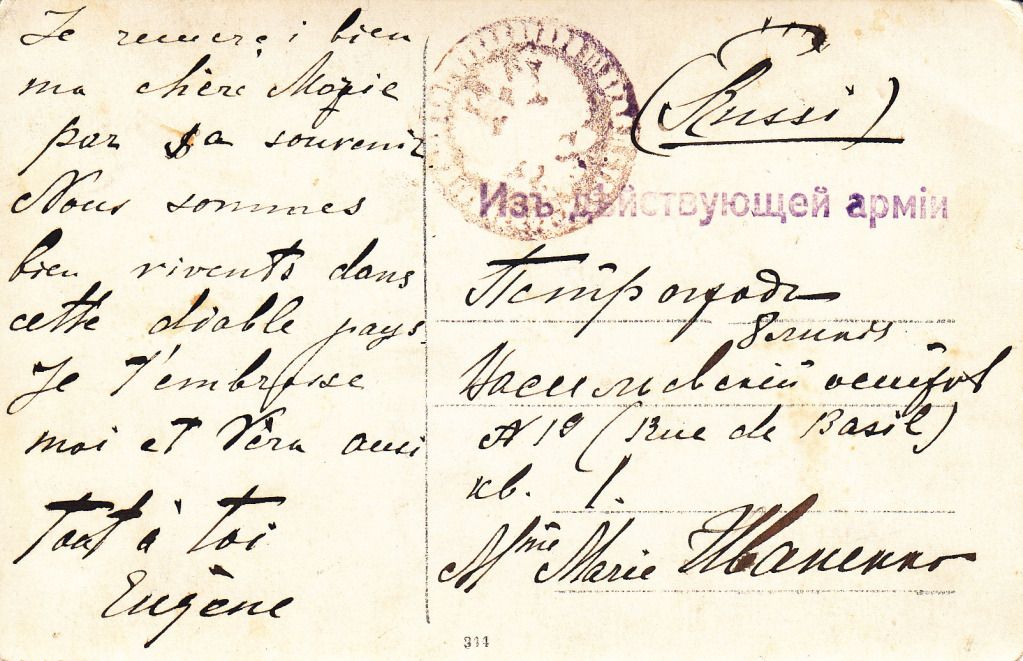 Je remerci bien
ma chère Marie
par sa souvenir
Nous sommes
bien vivents dans
cette diable pays.
Je t'embrasse
moi et Véra aussi
Tout à toi
Eugène
(Russi)
Изъ дѣйствующей арміи
Петроградъ
8 линія
Васильевскій островъ
№ 19 (Rue de Basil)
кв. 1.
Mme Marie Иваненко
344